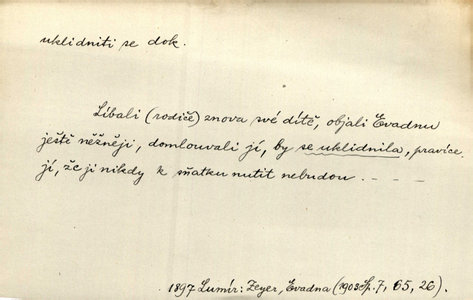 uklidniti se dok.
Líbali (rodiče) znova své dítě, objali Evadnu
ještě něžněji, domlouvali jí, by se uklidnila, pravíce
jí, že ji nikdy k sňatku nutit nebudou . - - -
1897 Lumír: Zeyer, Evadna (1903 Sp. 7, 65, 26).